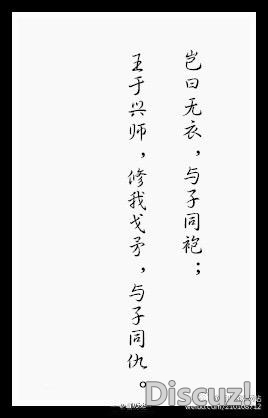 岂曰无衣，与子同袍；
王于兴师，修我戈矛，与子同仇。
Discuz!